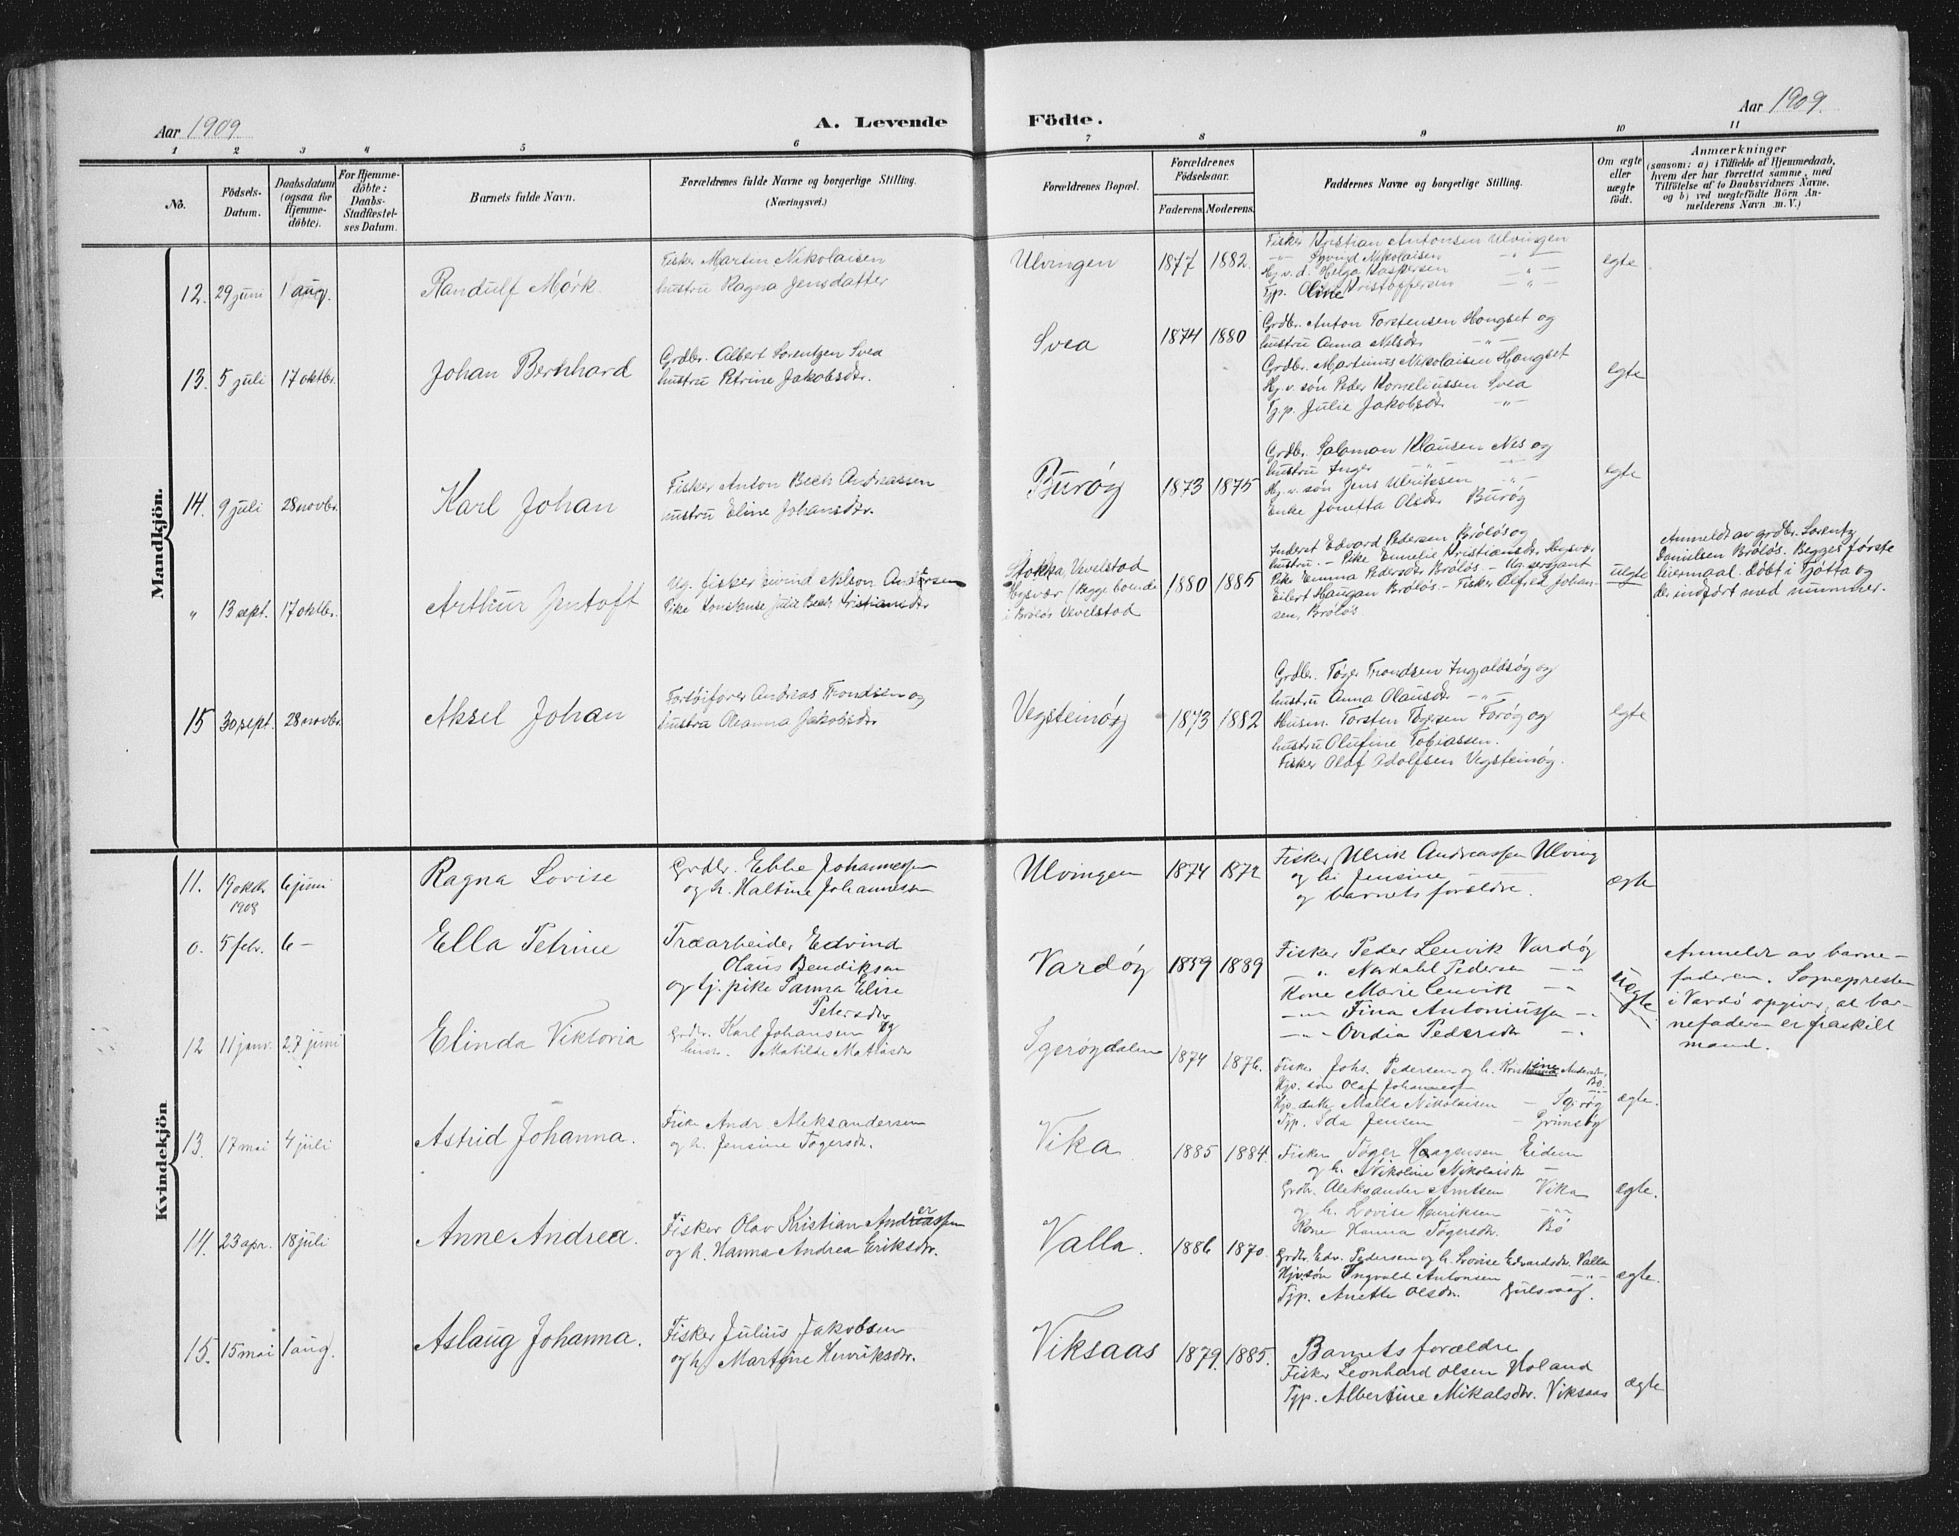 Aar 1909
A. Levende Födte.
Aar 1909
1 2 3 4 5 6 7 8 9 10 11
No.
Födsels-
Datum.
Daabsdatum
(ogsaa for
Hjemme-
döbte).
For Hjemme-
döbte:
Daabs-
Stadfæstel-
ses Datum.
Barnets fulde Navn.
Forældrenes fulde Navne og borgerlige Stilling.
(Næringsvei.)
Forældrenes Bopæl.
Forældrenes
Födselsaar.
Faderens. Moderens.
Faddernes Navne og borgerlige Stilling.
Om ægte
eller
uægte
födt.
Anmærkninger
(saasom: a) i Tilfælde af Hjemmedaab,
hvem der har forrettet samme, med
Tilföielse af to Daabsvidners Navne,
og b) ved uægtefödte Börn An-
melderens Navn m. V.)
Mandkjön.
12. 29 juni 1 aug. Randulf Mørk
Fisker Martin Nikolaisen
hustru Ragna Jensdatter
Ulvingen 1877 1882
Fisker Kristian Antonsen Ulvingen
-"- Eyvind Nikolaisen -"-
Hj.v.d. Helga Kaspersen -"-
Tjp. Oline Kristoffersen -"-
egte
13. 5 juli 17 oktbr. Johan Bernhard
Grdbr. Albert Lorentzen Svea
hustru Petrine Jakobsdr.
Svea 1874 1880
Grdbr. Anton Torstensen Hongset og
hustru Anna Nilsdr -"-
Grdbr. Martinus Nikolaisen Hongset
Hj.v. søn Peder Korneliussen Svea
Tjp. Julie Jakobsdr -"-
egte
14. 9 juli 28 novbr. Karl Johan
Fisker Anton Bech Andreassen
hustru Eline Johansdr.
Burøy 1873 1875
Grdbr. Salomon Klausen Nes og
hustru Inger -"-
Hj.v. søn Jens Ulriksen -"-
Enke Jonetta Olsdr Burøy
egte
" 13 sept. 17 oktbr. Arthur Jentoft
Ug. fisker Eivind Nilson Andersen
Pike Konstanse Julie Bech Kristiansdr
Stokka, Vevelstad
Hysvær (begge boende
i Brøløs Vevelstad
1880 1885
Inderst Edvard Pedersen Brøløs og
hustru. - Pike Emmelie Kristiansdr Hysvær
Pike Emma Pedersdr Brøløs - Ug. sersjant
Eilert Haugan Brøløs - Fisker Alfred Johan-
sen, Brøløs
uegte
Anmeldt av grdbr. Lorentz
Danielsen Brøløs. Begges første
leiermaal. Døbt i Tjøtta og
der indført med nummer.
15 30 sept. 28 novbr. Aksel Johan
Andreas Trondsen og
hustru Oleanna Jakobsdr
Vegsteinøy 1873 1882
Grdbr. Tøger Trondsen Ingjaldsøy og
hustru Anna Olausdr -"-
Husm. Torsten Tøgersen Forøy og
hustru Olufine Tobiassen.
Fisker Olaf Adolfsen Vegsteinøy.
egte
Kvindekjön
11. 19 oktbr 1908 6 juni Ragna Lovise
Grdbr. Ebbe Johannessen
og h. Haltine Johannessen
Ulvingen 1874 1872
Fisker Ulrik Andreassen Ulving
og h. Jensine
og barnets forældre.
ægte
0. 5 febr. 6 - Ella Petrine
Træarbeider Edvind
Olaus Bendiksen
og tj. pike Sanna Elise
Petersdr
Vardøy 1859 1889
Fisker Peder Lenvik Vardøy
" Nordahl Pedersen -"-
Kone Marie Lenvik -"-
-"- Fina Antoniussen -"-
-"- Ovidia Pedersdr -"-
Uægte
Anmeldt av barne-
faderen. Sognepresten
i Vardø opgiver, at bar-
nefaderen er fraskilt
mand.
12 11 janv. 27 juni Elinda Viktoria
Grdbr. Karl Johansen og
hustr. Matilde Matiasdr
Igerøydalen 1874 1876.
Fisker Johs. Pedersen og h. Kristine Andersdr, Bø
Hjp. søn Olaf Johannessen -"-
Hjp. datter Malla Nikolaisen - Igerøy
Tjp. Ida Jensen - Grimsøy
ægte.
13. 17 mai 4 juli Astrid Johanna.
Fiske Andr. Aleksandersen
og h. Jensine Tøgersdr.
Vika 1885 1884.
Fisker Tøger Haagensen Eidem
og h. Nikoline Nikolaisdr -
Grdbr. Aleksander Arntsen Vika
og h. Lovise Henriksen -"-
Kone Hanna Tøgersdr. Bø
ægte.
14. 23 apr. 18 juli Anne Andrea.
Fisker Olav Kristian Andreassen
og h. Hanna Andrea Eriksdr.
Valla. 1886 1870.
Grdbr. Edv. Pedersen og h. Lovise Edvardsdr. Valla
Hjv. søn Ingvald Antonsen -"-
Tjp. Anette Olsdr. Gulsvaag.
ægte.
15. 15 mai 1 aug. Aslaug Johanna.
Fisker Julius Jakobsen
og h. Martine Henriksdr.
Viksaas 1879. 1885.
Barnets forældre
Fisker Leonhard Olsen Høland
Tjp. Albertine Mikalsdr. Viksaas
ægte